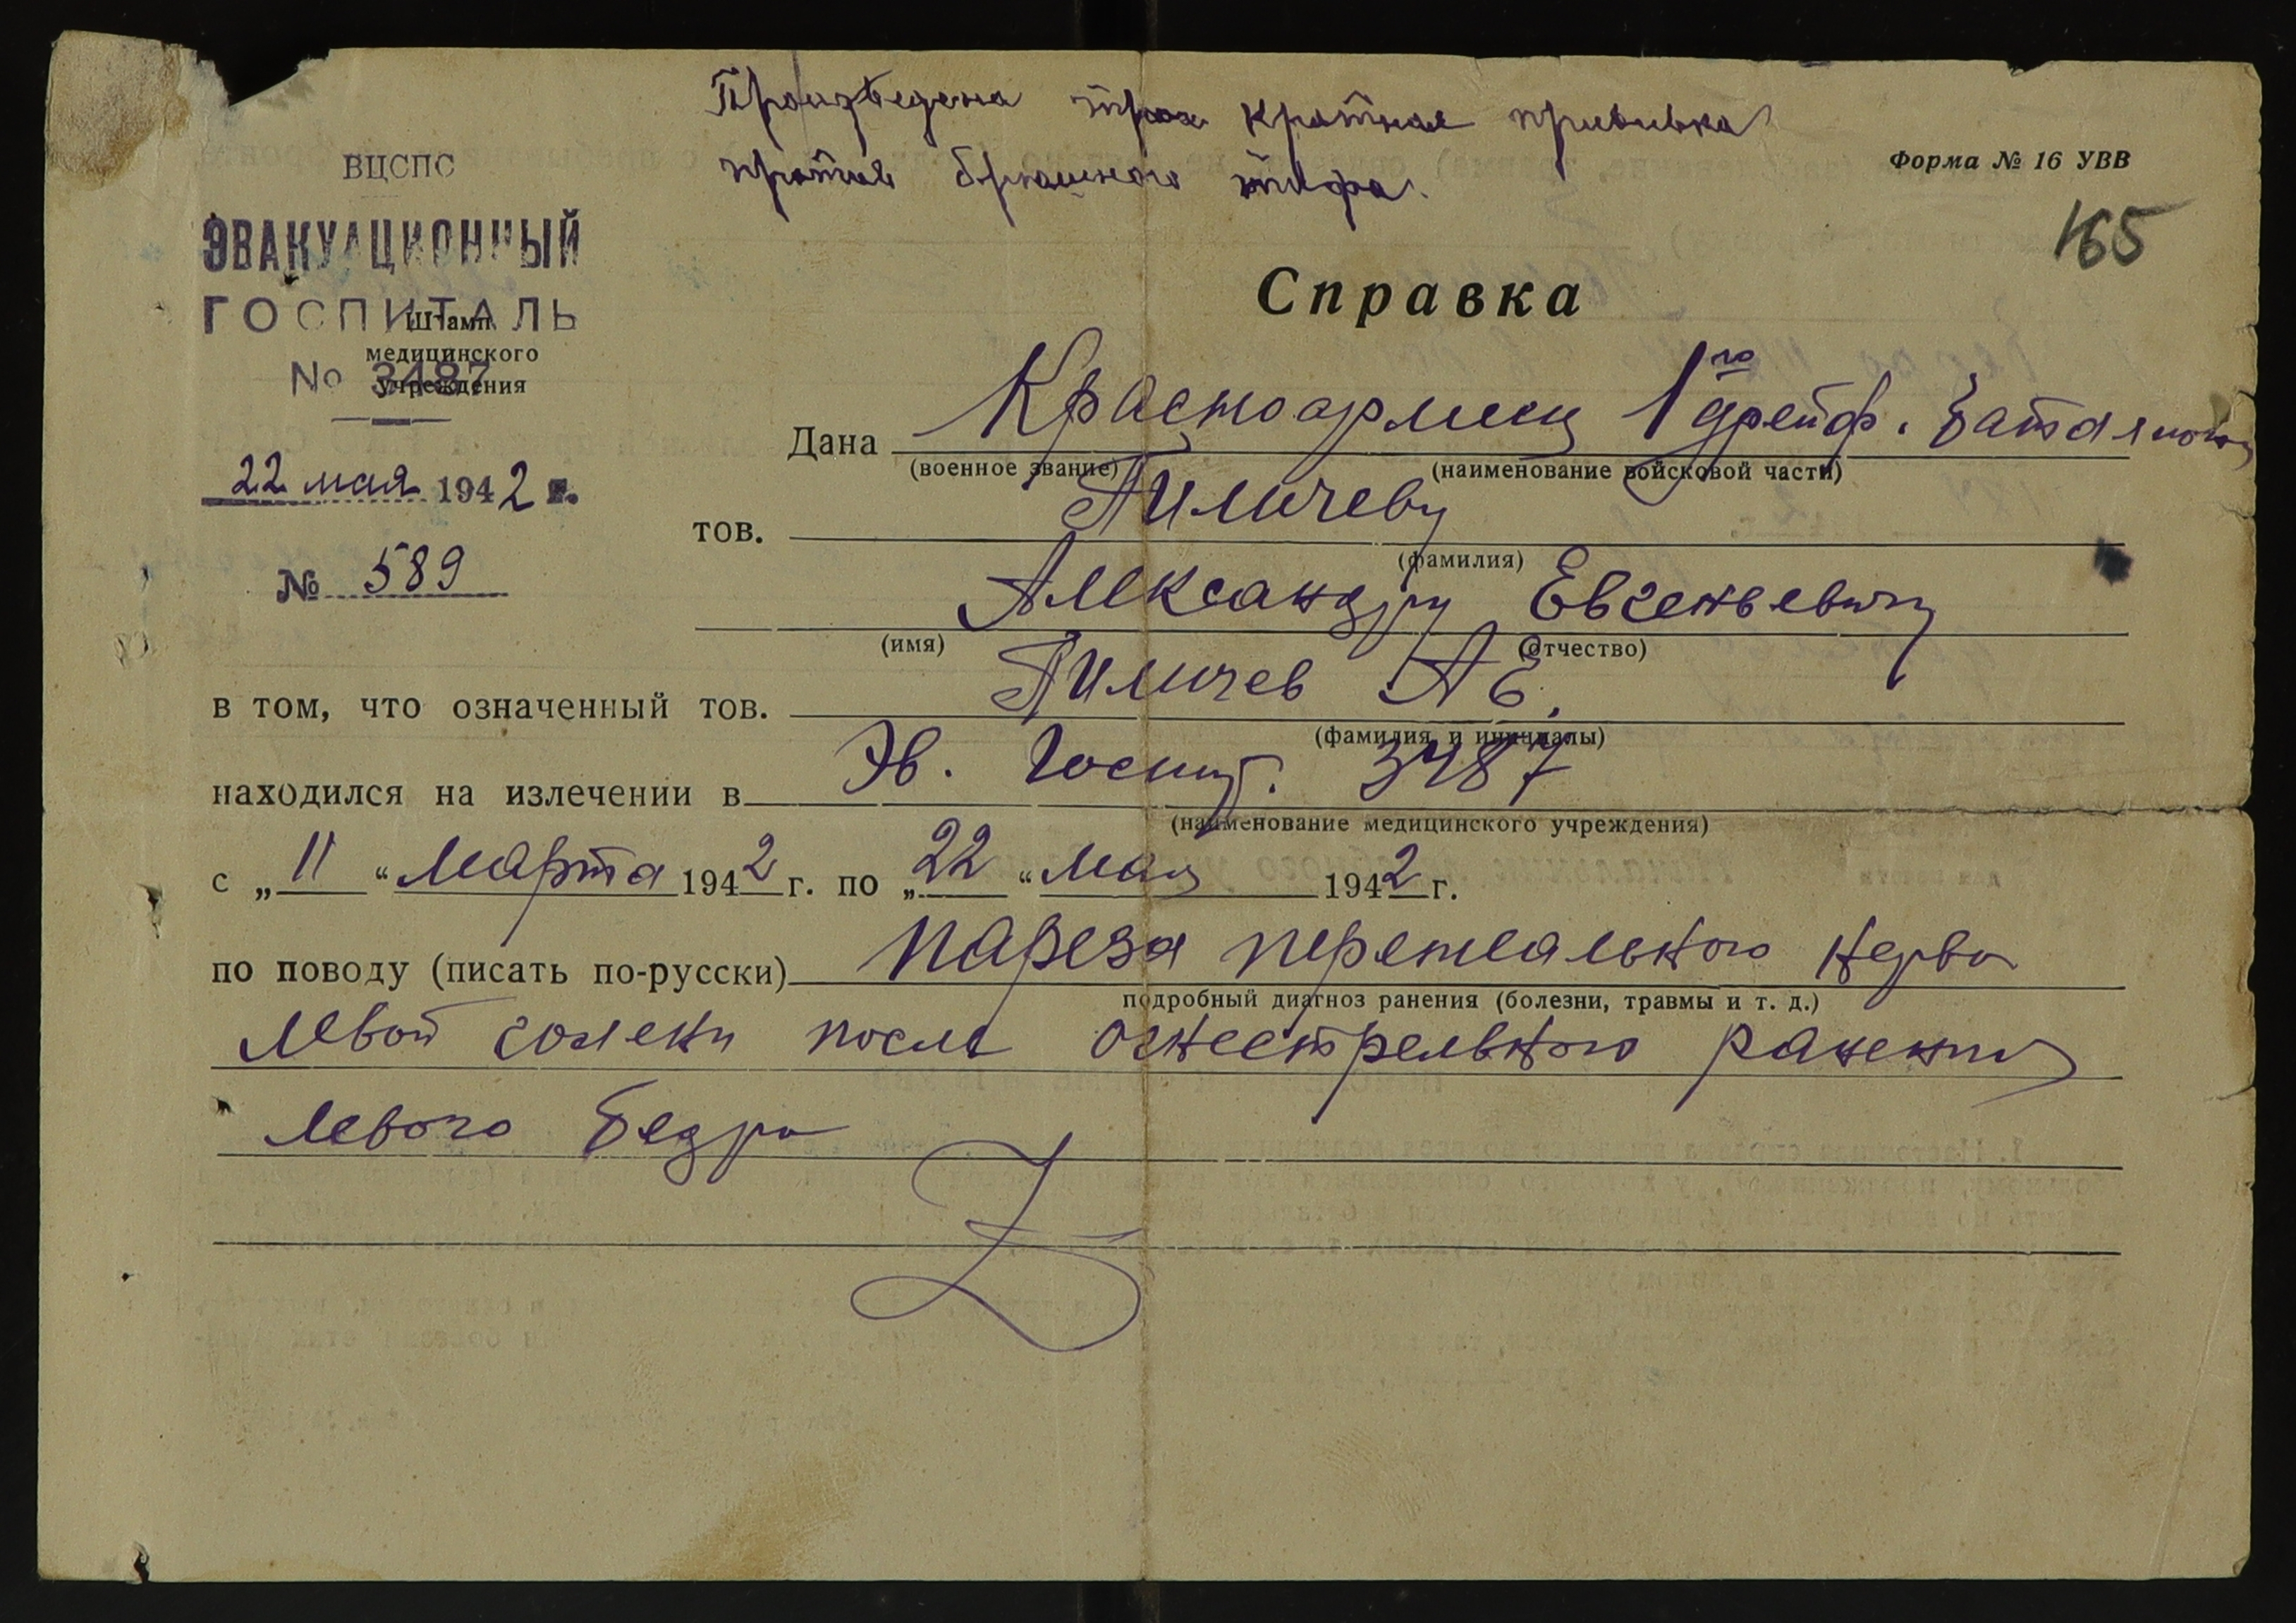 Произведена трех кратная прививка
против брюшного тифа.
Форма № 16 УВВ
165
ВЦСПС
ЭВАКУАЦИОННЫЙ
ГОСПИТАЛЬ
Штамп
медицинского
№ 3487
учреждения
22 мая 1942 г.
№ 589
Справка
Дана Красноармеец 1го батальона
(военное звание) (наименование войсковой части)
тов. Пиличеву
(фамилия)
Александру Евгеньевичу
(имя) (отчество)
в том, что означенный тов. Пиличев А Е.
(фамилия и инициалы)
находился на излечении в Эв. Госпит. 3487
(наименование медицинского учреждения)
с „11“ Марта 1942 г. по „22“ Мая 1942 г.
по поводу (писать по-русски) пареза перонеального нерва
подробный диагноз ранения (болезни, травмы и т. д.)
левой голени после огнестрельного ранения
левого бедра